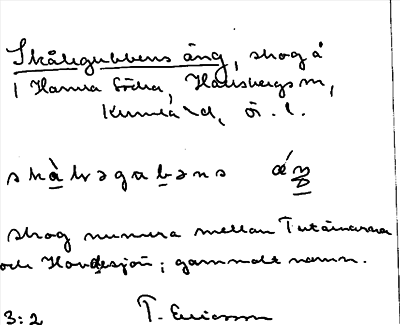 Skålegubbens äng, skog å
1 Hamra Södra, Hallsbergs sn,
Kumla hd, Ör. l.
skàlvəgabəns
skog numera mellan Tutärnarna
och Hovdesjön; gammalt namn.
3:2 T. Ericsson